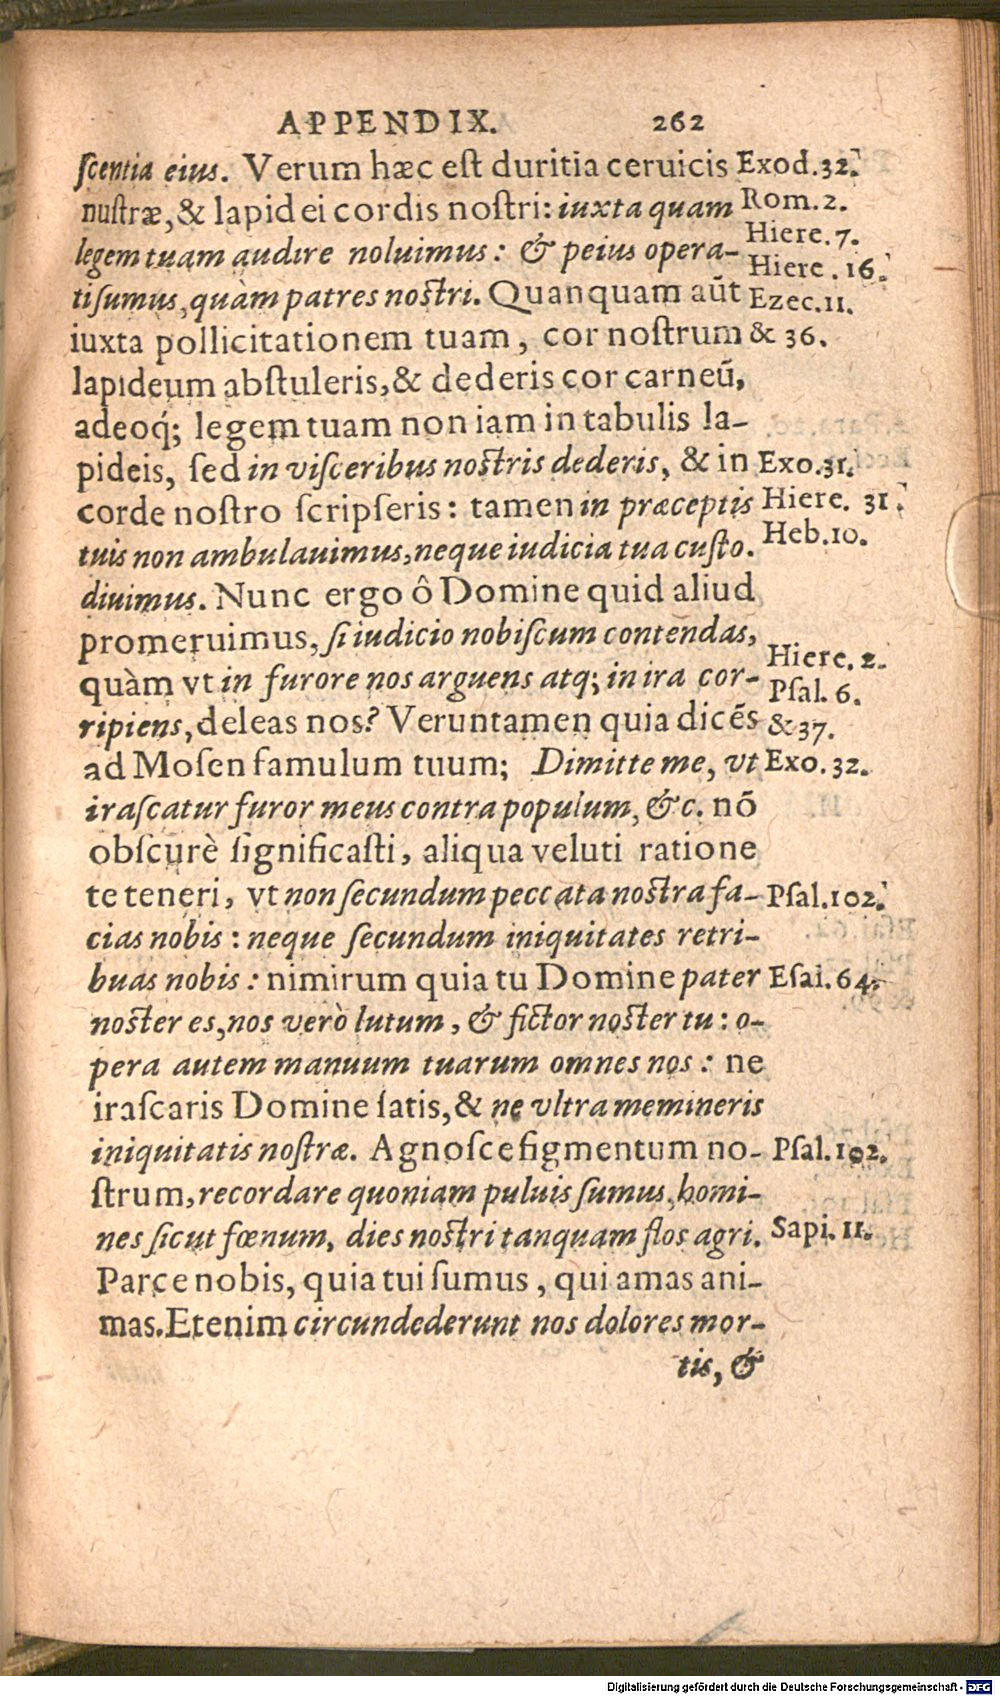 APPENDIX. 262
ſcentia eius. Verum hæc eſt duritia ceruicis Exod.32.
nuſtræ, & lapidei cordis noſtri: iuxta quam Rom.2.
legem tuam audire noluimus: & peius opera- Hiere.7.
Hiere.16.
ti ſumus, quàm patres noſtri. Quanquam aūt Ezec.11.
iuxta pollicitationem tuam, cor noſtrum & 36.
lapideum abſtuleris, & dederis cor carneū,
adeoq́; legem tuam non iam in tabulis la-
pideis, ſed in viſceribus noſtris dederis, & in Exo.31.
corde noſtro ſcripſeris: tamen in præceptis Hiere. 31.
tuis non ambulauimus, neque iudicia tua cuſto. Heb.10.
diuimus. Nunc ergo ô Domine quid aliud
promeruimus, ſi iudicio nobiſcum contendas,
Hiere.2.
quàm vt in furore nos arguens atq; in ira cor- Pſal.6.
ripiens, deleas nos? Veruntamen quia dicēs & 37.
ad Moſen famulum tuum; Dimitte me, vt Exo.32.
iraſcatur furor meus contra populum, &c. nō
obſcurè ſignificaſti, aliqua veluti ratione
te teneri, vt non ſecundum peccata noſtra fa- Pſal.102.
cias nobis: neque ſecundum iniquitates retri-
buas nobis: nimirum quia tu Domine pater Eſai.64.
noſter es, nos verò lutum, & fictor noſter tu: o-
pera autem manuum tuarum omnes nos: ne
iraſcaris Domine ſatis, & ne vltra memineris
iniquitatis noſtræ. Agnoſce figmentum no- Pſal.102.
ſtrum, recordare quoniam puluis ſumus, homi-
nes ſicut fœnum, dies noſtri tanquam flos agri. Sapi.11.
Parce nobis, quia tui ſumus, qui amas ani-
mas. Etenim circundederunt nos dolores mor-
tis, &
Digitalisierung gefördert durch die Deutsche Forschungsgemeinschaft - DFG